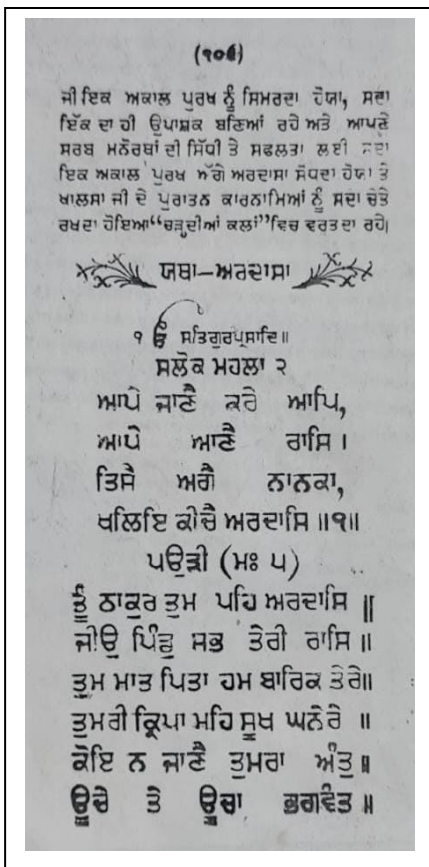 (੧੦੬)
ਜੀ ਇਕ ਅਕਾਲ ਪੁਰਖ ਨੂੰ ਸਿਮਰਦਾ ਹੋਯਾ, ਸਦਾ
ਇੱਕ ਦਾ ਹੀ ਉਪਾਸ਼ਕ ਬਣਿਆਂ ਰਹੇ ਅਤੇ ਆਪਣੇ
ਸਰਬ ਮਨੋਰਥਾਂ ਦੀ ਸਿੱਧੀ ਤੇ ਸਫਲਤਾ ਲਈ ਸਦਾ
ਇਕ ਅਕਾਲ ਪੁਰਖ ਅੱਗੇ ਅਰਦਾਸਾ ਸੋਧਦਾ ਹੋਯਾ ਤੇ
ਖਾਲਸਾ ਜੀ ਦੇ ਪੁਰਾਤਨ ਕਾਰਨਾਮਿਆਂ ਨੂੰ ਸਦਾ ਚੇਤੇ
ਰਖਦਾ ਹੋਇਆ “ਚੜ੍ਹਦੀਆਂ ਕਲਾਂ” ਵਿਚ ਵਰਤਦਾ ਰਹੇ।
ਯਥਾ—ਅਰਦਾਸਾ
੧ ੳ ਸਤਿਗੁਰਪ੍ਰਸਾਦਿ॥
ਸਲੋਕ ਮਹਲਾ ੨
ਆਪੇ ਜਾਣੈ ਕਰੇ ਆਪਿ,
ਆਪੇ ਆਣੈ ਰਾਸਿ ।
ਤਿਸੈ ਅਗੈ ਨਾਨਕਾ,
ਖਲਿਇ ਕੀਚੈ ਅਰਦਾਸਿ ॥੧॥
ਪਉੜੀ (ਮਃ ੫)
ਤੂੰ ਠਾਕੁਰ ਤੁਮ ਪਹਿ ਅਰਦਾਸਿ ॥
ਜੀਉ ਪਿੰਡੁ ਸਭ ਤੇਰੀ ਰਾਸਿ ॥
ਤੁਮ ਮਾਤ ਪਿਤਾ ਹਮ ਬਾਰਿਕ ਤੇਰੇ॥
ਤੁਮਰੀ ਕ੍ਰਿਪਾ ਮਹਿ ਸੂਖ ਘਨੇਰੇ ॥
ਕੋਇ ਨ ਜਾਣੈ ਤੁਮਰਾ ਅੰਤੁ ॥
ਊਚੇ ਤੇ ਊਚਾ ਭਗਵੰਤ ॥